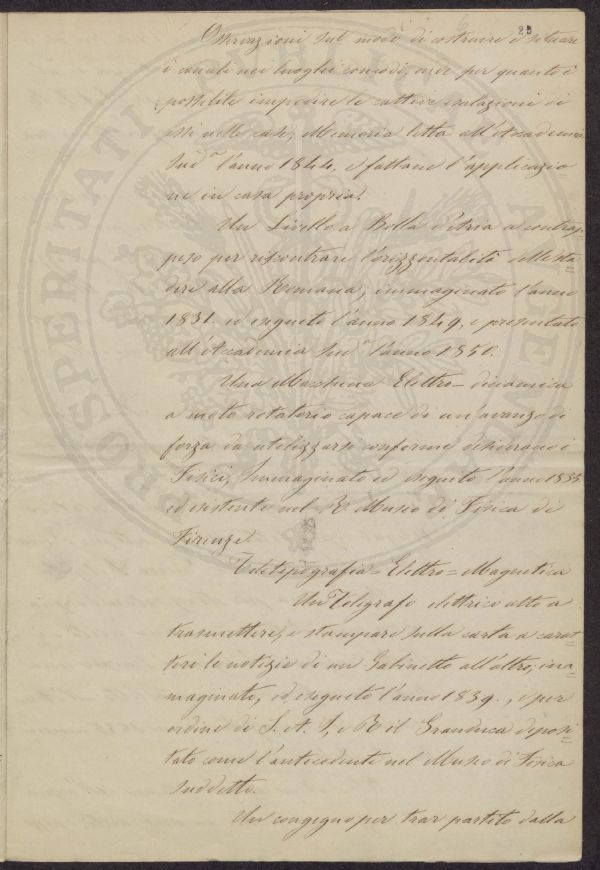 28
Osservazioni sul modo di costruire e situare
i canali nei luoghi comodi, onde per quanto è
possibile impedire le cattive esalazioni di
essi nelle case, Memoria letta all'Accademia
Sudª l'anno 1844, e fattane l'applicazio
ne in casa propria.
Un Livello a Bolla d'Aria a contrap=
peso per riscontrare l'orizzontalità delle sta=
dere alla Romana, immaginato l'anno
1831. ed eseguito l'anno 1849, e presentato
all'Accademia Sudª l'anno 1850.
Una Macchina Elettro=dinamica
a moto rotatorio capace di un'avanzo di
forza da utilizzarsi conforme desiderano i
Fisici, Immaginato ed eseguito l'anno 1835
ed esistente nel R. Museo di Fisica di
Firenze.
Teletipografia=Elettro=Magnetica
Un Telegrafo elettrico atto a
trasmettere, e stampare sulla carta a carat=
teri le notizie di un Gabinetto all'altro, im=
maginato, ed eseguito l'anno 1839., e per
ordine di S. A. I, e R il Granduca deposi=
tato come l'antecedente nel Museo di Fisica
suddetto.
Un congegno per trar partito dalla
PROSPERITATI PUBLICAE AUGENDAE